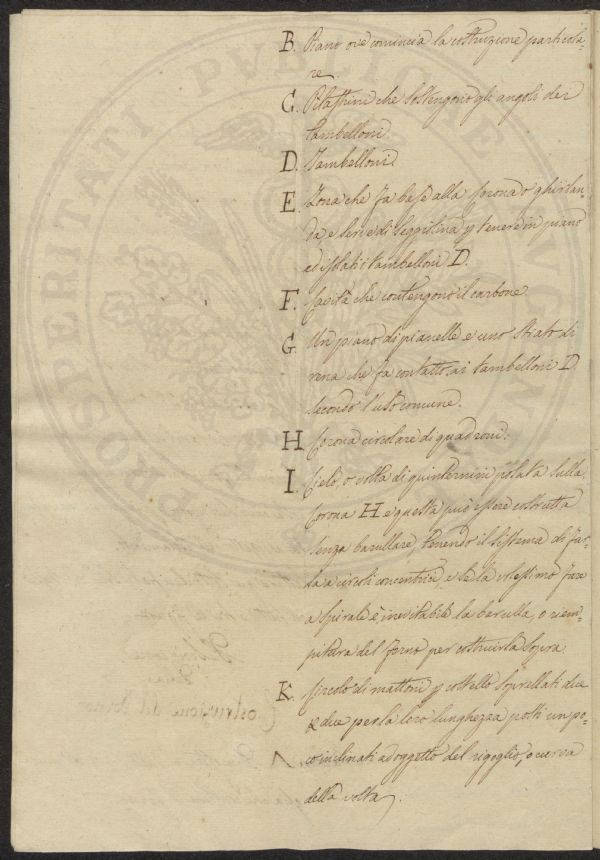 B. Piano ove comincia la costruzione particola-
re.
C. Pilastrini che sostengono gli angoli dei
tambelloni.
D. Tambelloni.
E. Zona che fa base alla Corona o ghirlan-
da e serve di seggiolina p tenere in piano
ed isolati i tambelloni D.
F. Cavità che contengono il carbone
G. Un piano di pianelle e uno strato di
rena che fa contatto ai tambelloni D
secondo l'uso comune.
H. Corona circolare di quadroni.
I. Cielo, o volta di quinternini posata sulla
Corona H e questa può essere costrutta
senza barullare, tenendo il sistema di far-
la a circoli concentrici, e se la volessimo fare
a spirale è inevitabile la barulla, o riem-
pitura del forno per costruirla sopra
K. Circolo di mattoni p coltello soprellati due
a due per la loro lunghezza posti un po-
co inclinati ad oggetto del rigoglio, o curva
della volta.
PROSPERITATI PUBLICAE
Costruzione del forno